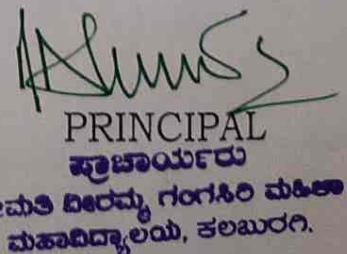 PRINCIPAL
ಪ್ರಾಚಾರ್ಯರು
ಮತಿ ವೀರಮ್ಮ ಗಂಗಸಿರಿ ಮಹಿಳಾ
ಮಹಾವಿದ್ಯಾಲಯ, ಕಲಬುರಗಿ.